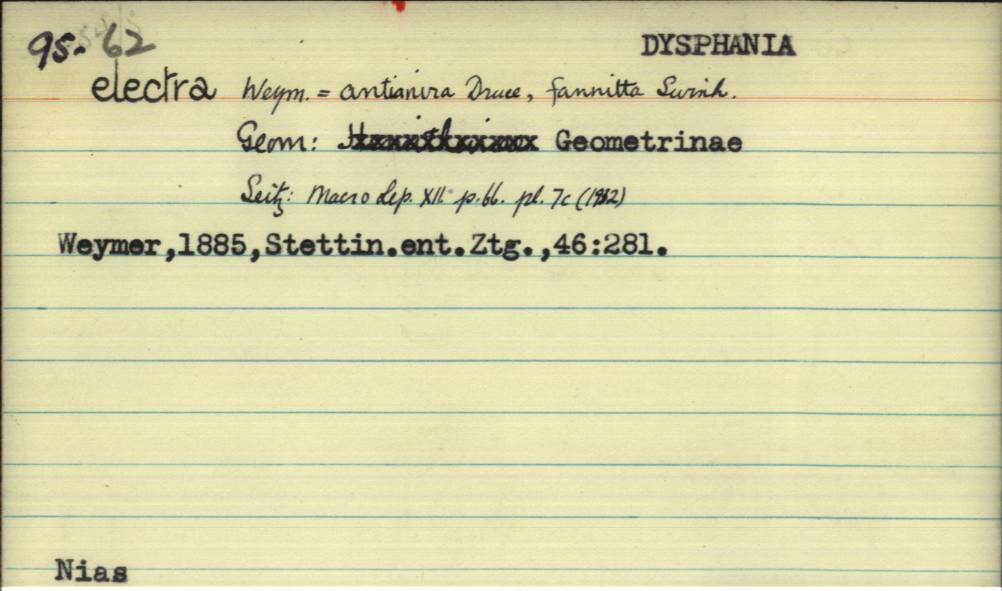 95. 62
DYSPHANIA
electra Weym. = antianira Druce, fannitta Swinh.
Geom: Geometrinae
Seitz: Macro Lep. XII. p.66. pl. 7c
Weymer,1885,Stettin.ent.Ztg.,46:281.
Nias